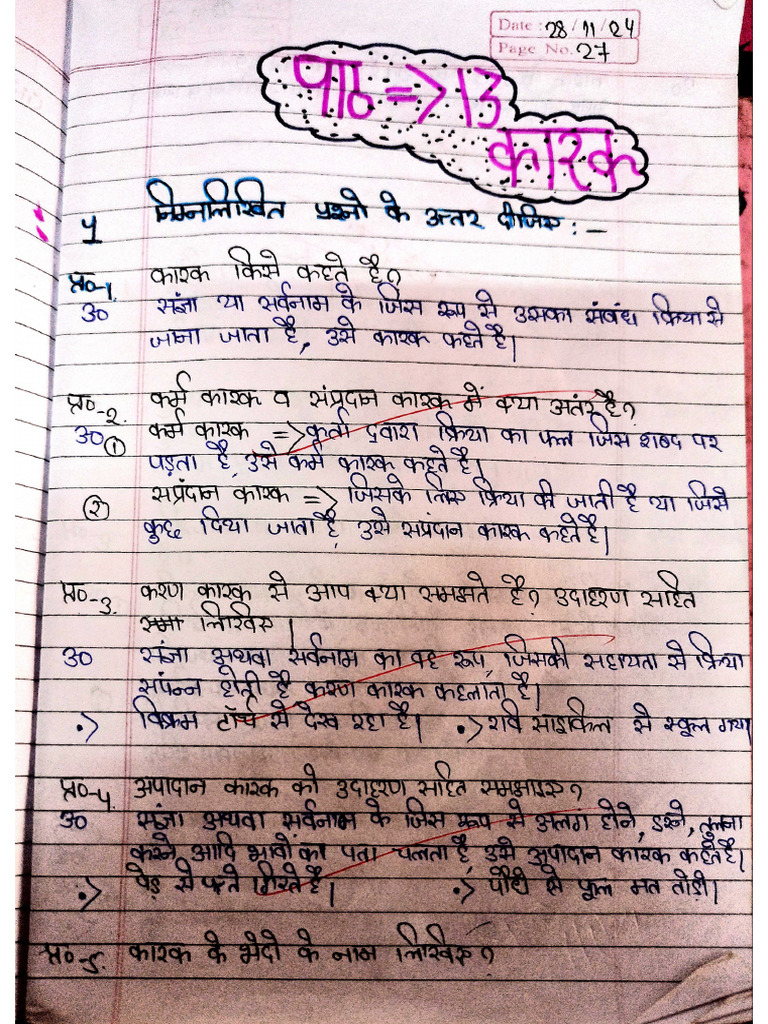 Date : 28/11/24
Page No. 27
पाठ => 13
कारक
1 निम्नलिखित प्रश्नो के उत्तर दीजिए :-
प्र०-1. कारक किसे कहते है?
उ० संज्ञा या सर्वनाम के जिस रूप से उसका संबंध क्रिया से
जाना जाता है, उसे कारक कहते है।
प्र०-2. कर्म कारक व संप्रदान कारक में क्या अंतर है?
उ० ① कर्म कारक => कर्ता द्वारा क्रिया का फल जिस शब्द पर
पड़ता है, उसे कर्म कारक कहते है।
② सप्रंदान कारक => जिसके लिए क्रिया की जाती है या जिसे
कुछ दिया जाता है, उसे सप्रंदान कारक कहते है।
प्र०-3. करण कारक से आप क्या समझते है? उदाहरण सहित
लिखिए।
उ० संज्ञा अथवा सर्वनाम का वह रूप, जिसकी सहायता से क्रिया
संपन्न होती है करण कारक कहलाता है।
•> विक्रम टॉर्च से देख रहा है। •> रवि साइकिल से स्कूल गया।
प्र०-4. अपादान कारक को उदाहरण सहित समझाइए?
उ० संज्ञा अथवा सर्वनाम के जिस रूप से अलग होने, डरने, तुलना
करने, आदि भावों का पता चलता है, उसे अपादान कारक कहते है।
•> पेड़ से पत्ते गिरते है। •> पौधे से फूल मत तोड़ो।
प्र०-5. कारक के भेदो के नाम लिखिए?